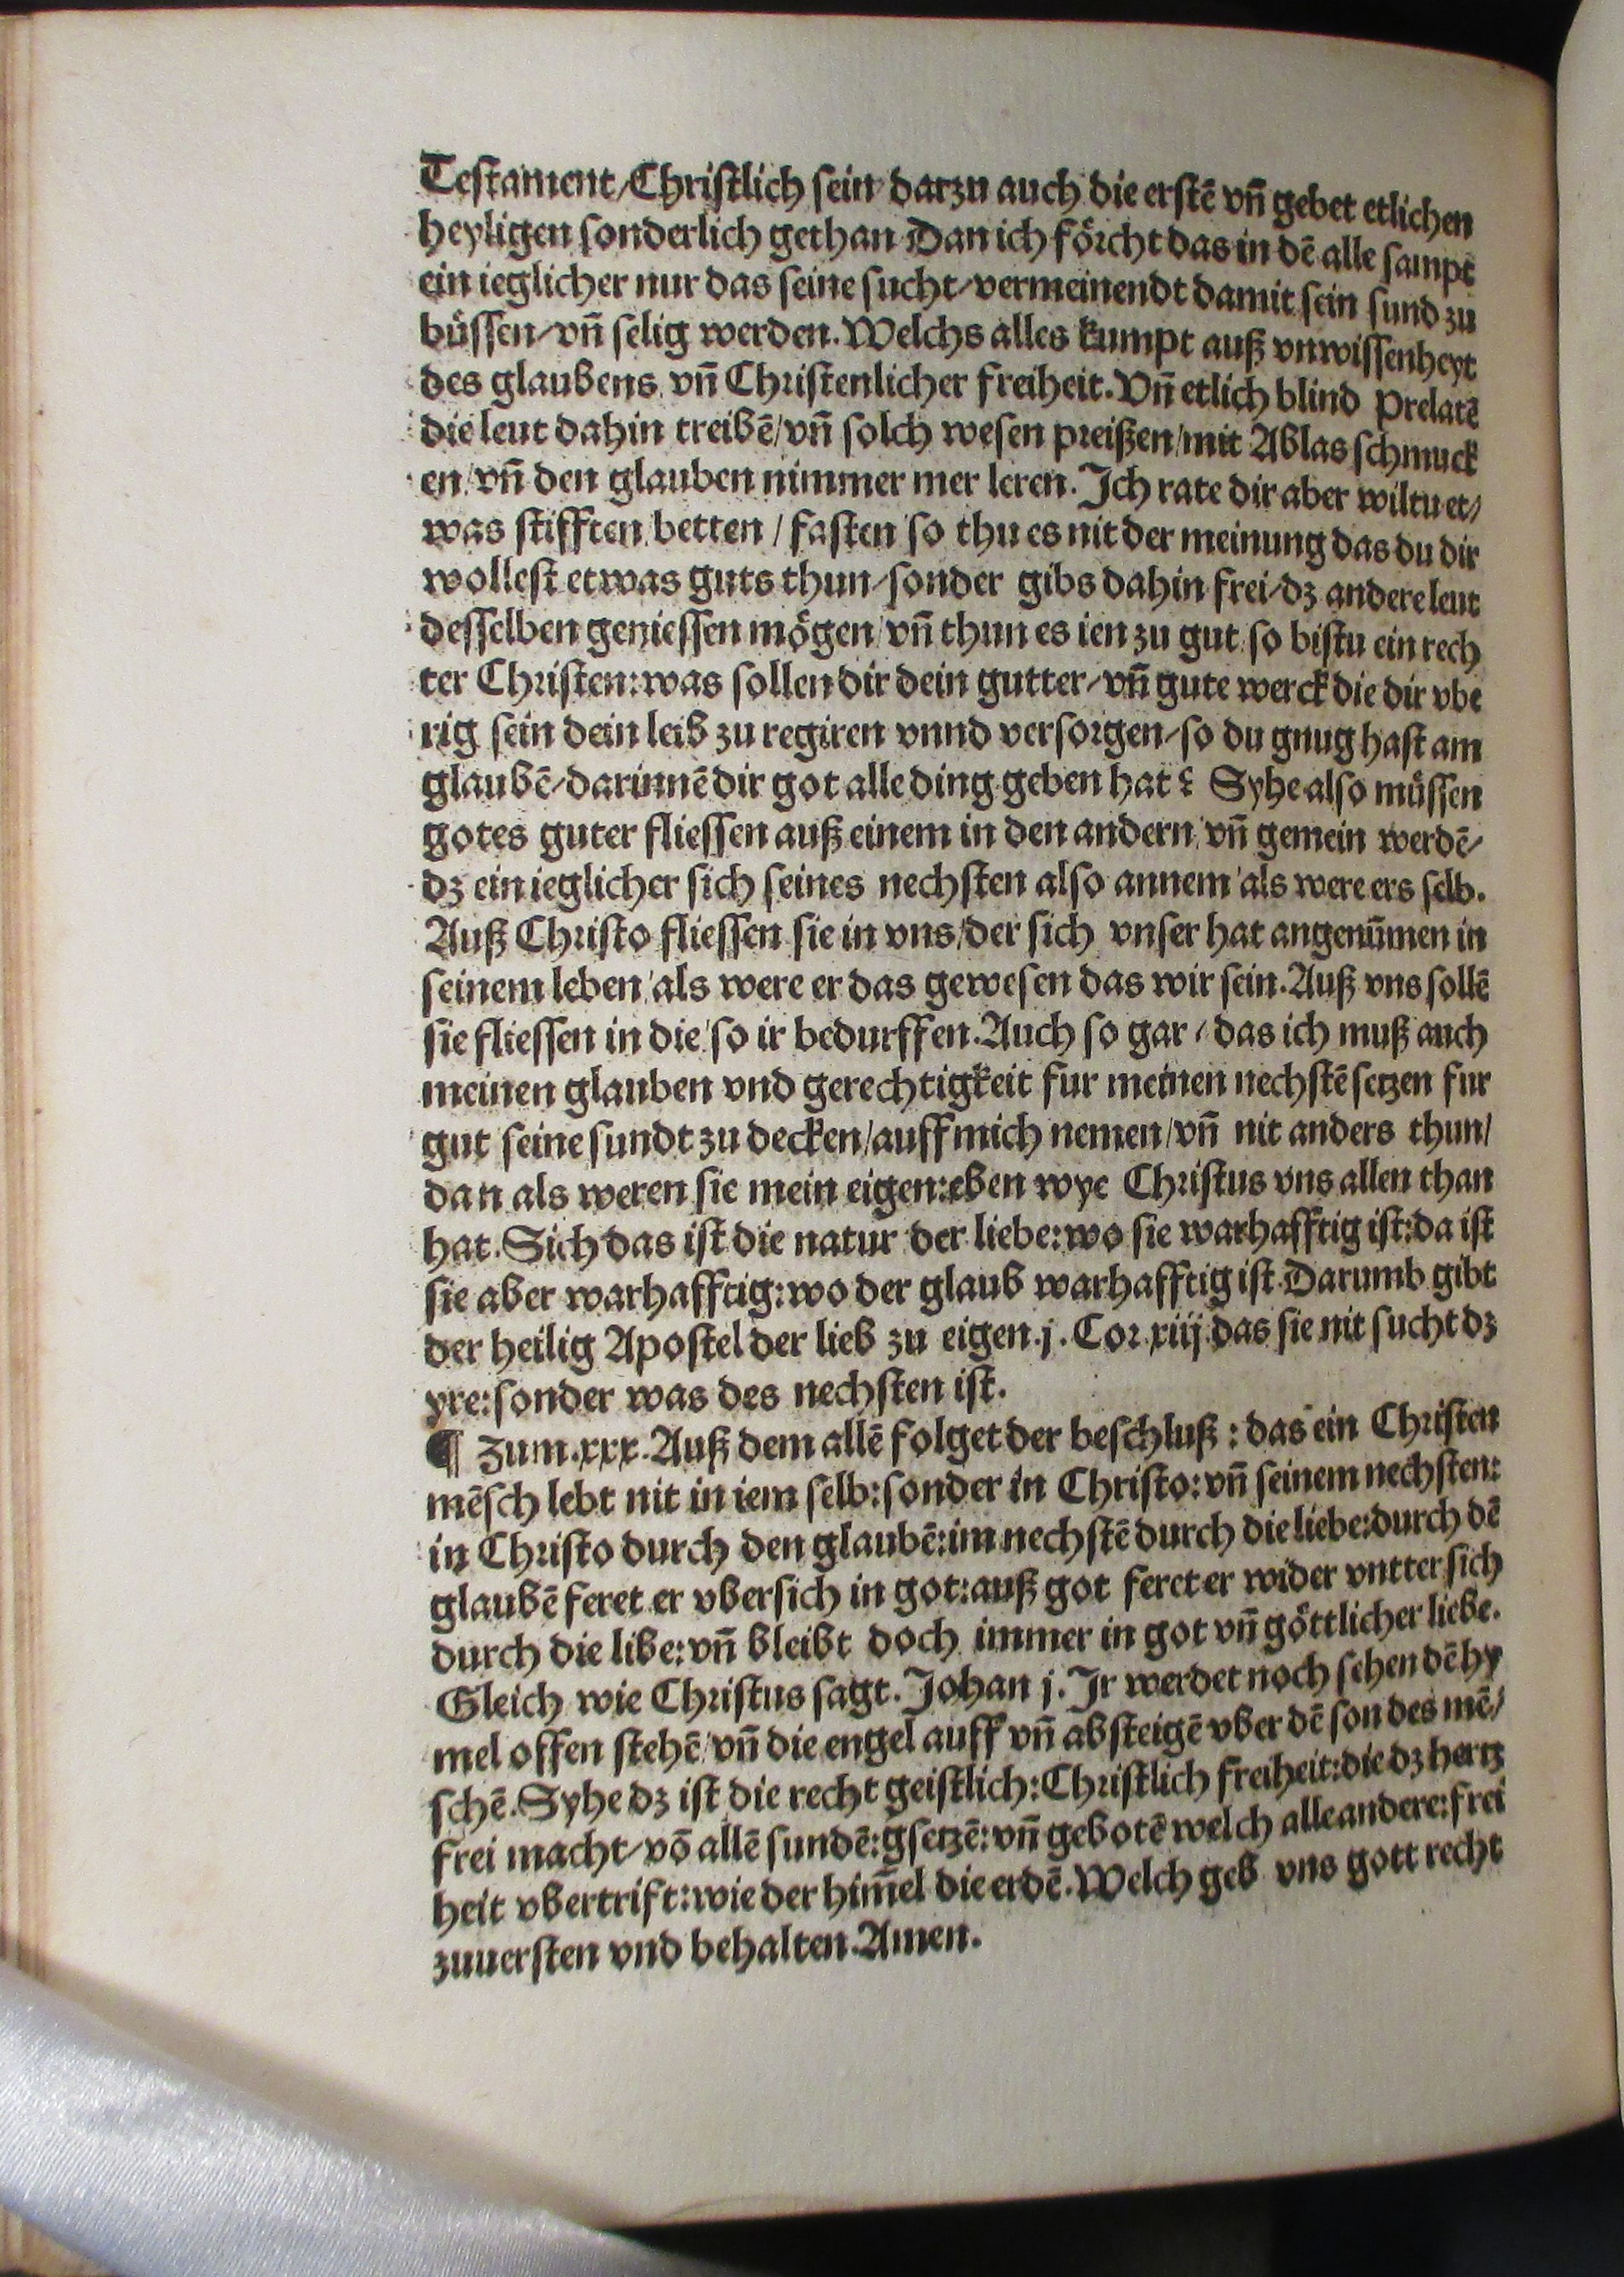 Testament/Christlich sein darzu auch die erstē vñ gebet etlichen
heyligen sonderlich gethan Dan ich förcht das in dē alle sampt
ein ieglicher nur das seine sucht/vermeinendt damit sein sund zu
büssen/vñ selig werden. Welchs alles kumpt auß vnwissenheyt
des glaubens vñ Christenlicher freiheit. Vñ etlich blind Prelatē
die leut dahin treibē/vñ solch wesen preißen/mit Ablas schmuck
en/vñ den glauben nimmer mer leren. Ich rate dir aber wiltu et/
was stifften betten / fasten so thu es nit der meinung das du dir
wollest etwas guts thun/sonder gibs dahin frei/dz andere leut
desselben geniessen mögen/vñ thun es ien zu gut so bistu ein rech
ter Christen: was sollen dir dein gutter/vñ gute werck die dir vbe
rig sein dein leib zu regiren vnnd versorgen/so du gnug hast am
glaubē/darinnē dir got alle ding geben hat? Syhe also müssen
gotes guter fliessen auß einem in den andern vñ gemein werdē/
dz ein ieglicher sich seines nechsten also annem als were ers selb.
Auß Christo fliessen sie in vns/der sich vnser hat angenūmen in
seinem leben als were er das gewesen das wir sein. Auß vns sollē
sie fliessen in die so ir bedurffen. Auch so gar / das ich muß auch
meinen glauben vnd gerechtigkeit fur meinen nechstē setzen fur
gut seine sundt zu decken/auff mich nemen/vñ nit anders thun/
dan als weren sie mein eigen: eben wye Christus vns allen than
hat. Sich das ist die natur der liebe: wo sie warhafftig ist: da ist
sie aber warhafftig: wo der glaub warhafftig ist. Darumb gibt
der heilig Apostel der lieb zu eigen. j. Cor. xiij das sie nit sucht dz
yre: sonder was des nechsten ist.
¶ Zum. xxx. Auß dem allē folget der beschluß : das ein Christen
mēsch lebt nit in iem selb: sonder in Christo: vñ seinem nechsten:
in Christo durch den glaubē: im nechstē durch die liebe: durch dē
glaubē feret er vbersich in got: auß got feret er wider vntter sich
durch die libe: vñ bleibt doch immer in got vñ göttlicher liebe.
Gleich wie Christus sagt. Johan j. Ir werdet noch sehen dē hy
mel offen stehē vñ die engel auff vñ absteigē vber dē son des mē/
schē. Syhe dz ist die recht geistlich: Christlich freiheit: die dz hertz
frei macht/vō allē sundē: gsetzē: vñ gebotē welch alle andere: frei
heit vbertrift: wie der him̄el die erdē. Welch geb vns gott recht
zuuersten vnd behalten. Amen.